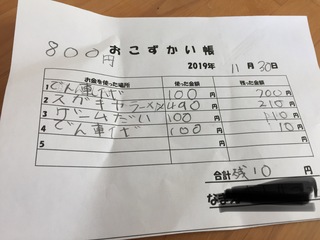 800円
おこずかい帳
2019年 11月 30日
お金を使った場所 使った金額 残った金額
1 でん車代 100円 700円
2 スガキヤラーメン 490円 210円
3 ゲームだい 100円 110円
4 でん車代 100円 10円
5 円 円
合計 残10円